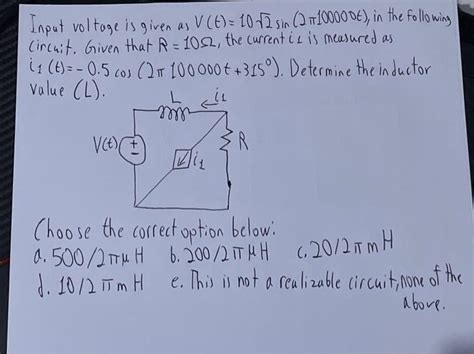 Input voltage is given as V(t) = 10√2 sin (2π100000t), in the following
circuit. Given that R = 10Ω, the current i1 is measured as
i1(t) = - 0.5 cos (2π 100000t + 315°). Determine the inductor
value (L).
L
i1
V(t)
+
-
i1
R
Choose the correct option below:
a. 500/2π μH b. 200/2π μH c. 20/2π mH
d. 10/2π mH e. This is not a realizable circuit, none of the
above.